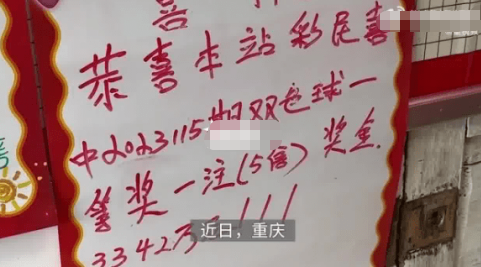 喜
恭喜本站彩民喜
中2023115期双色球一
等奖一注(5倍)奖金
3342万元!!!
近日,重庆